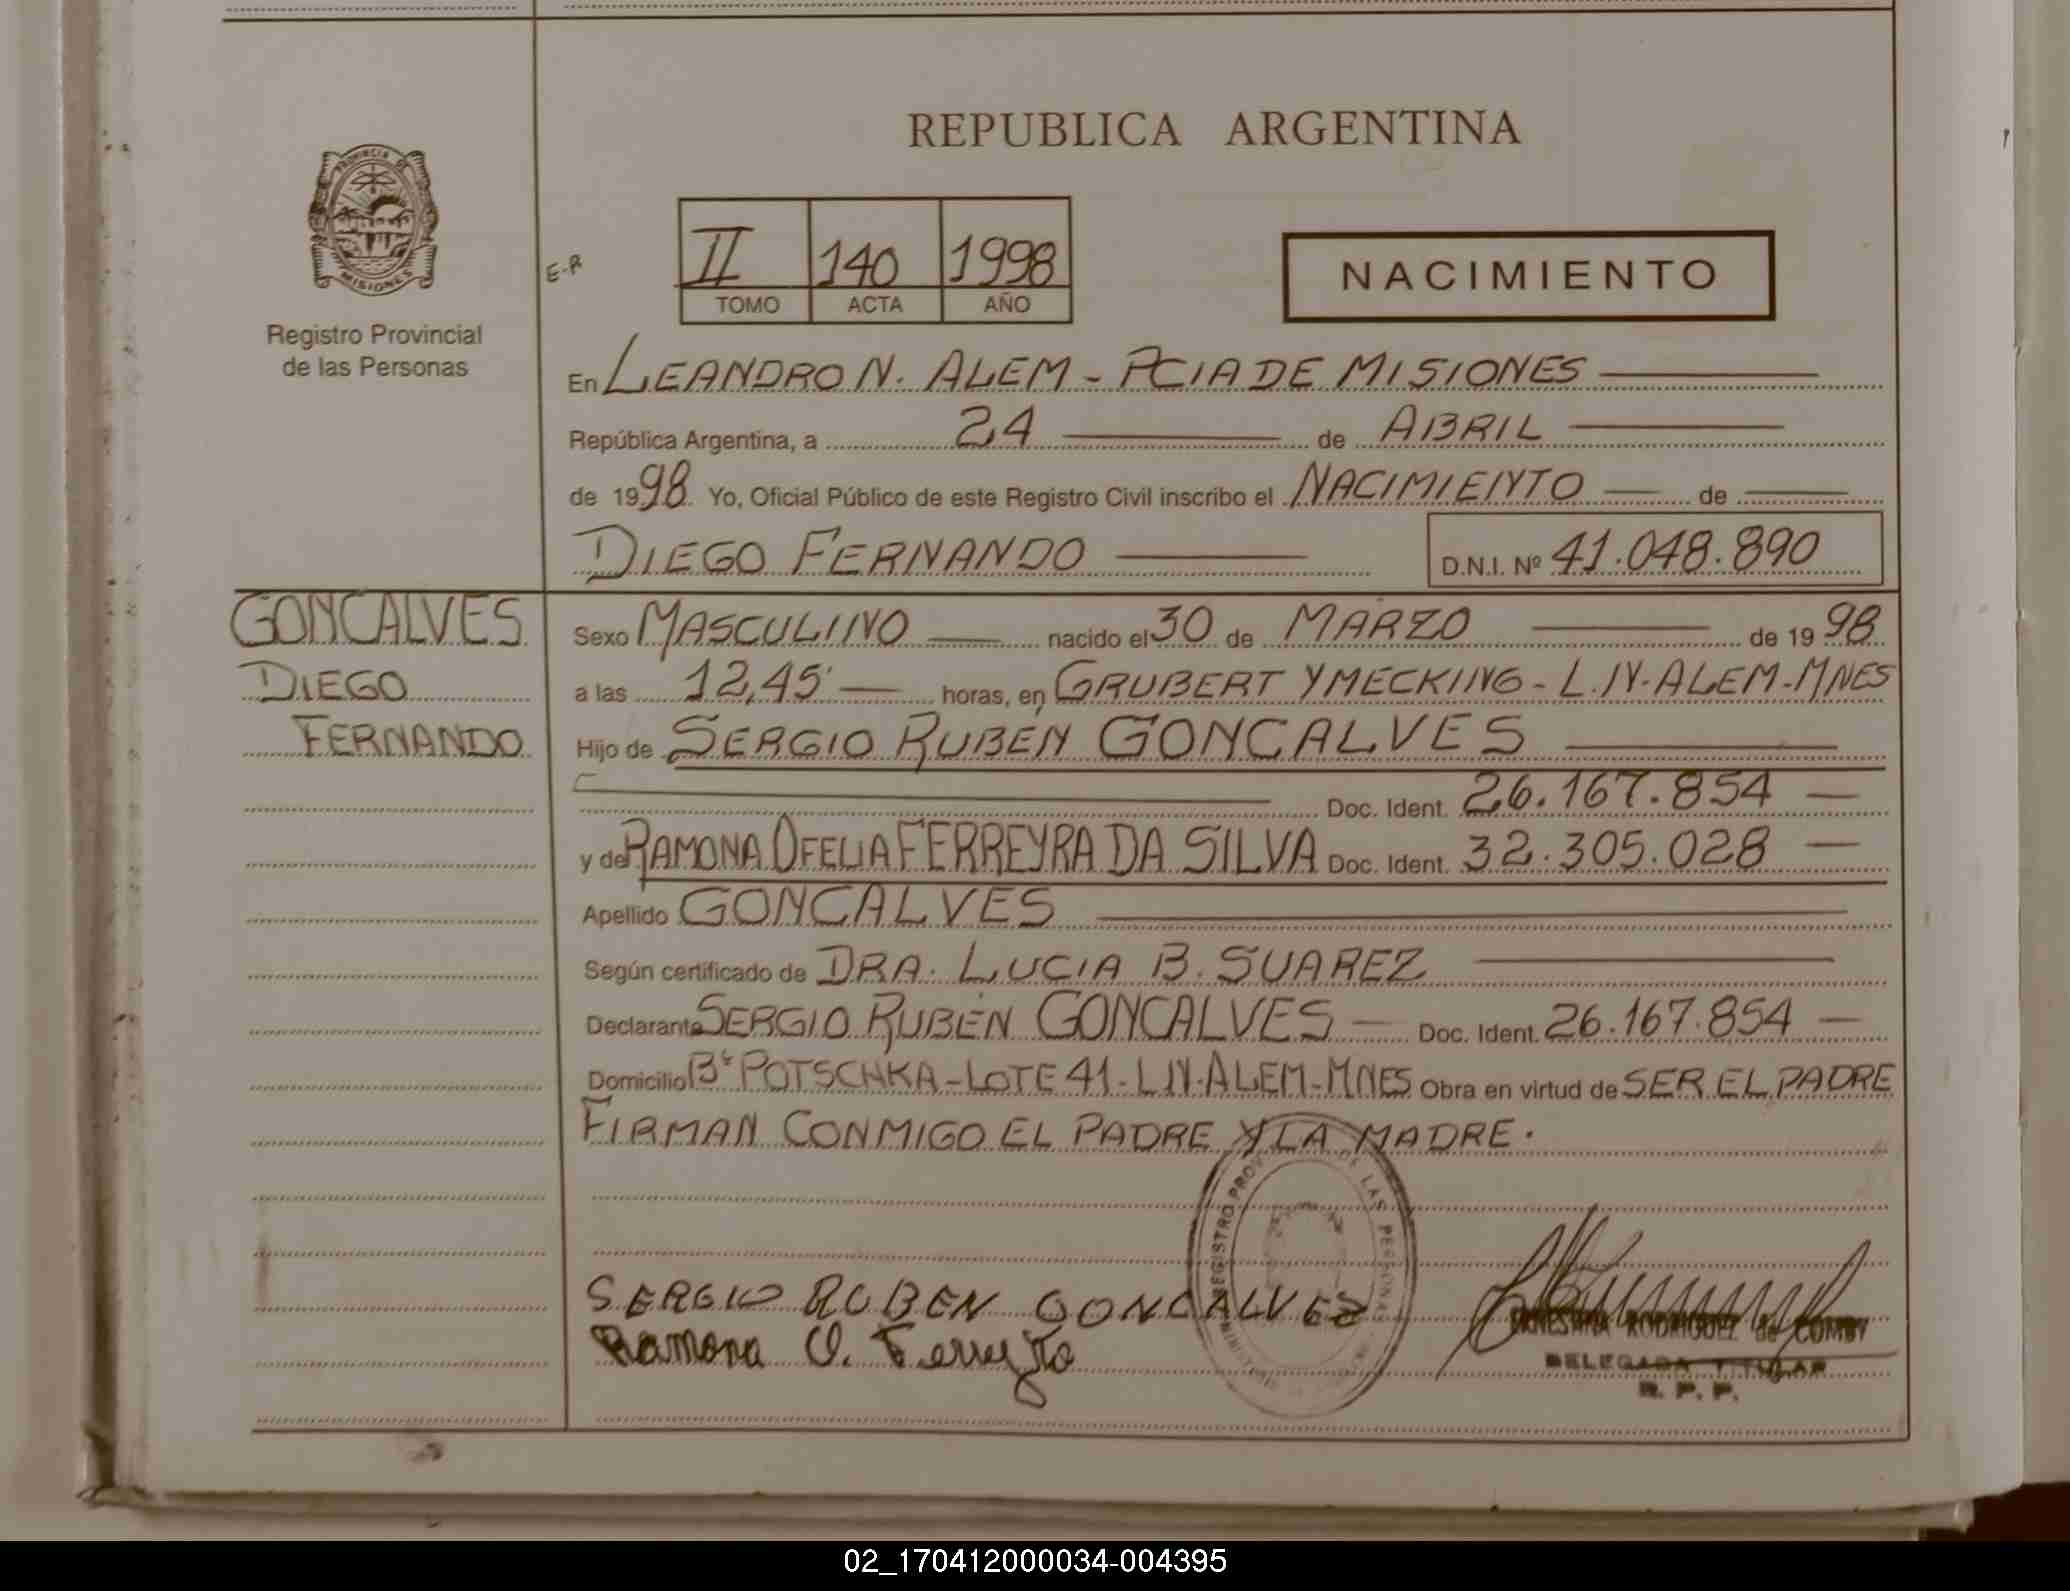 REPUBLICA ARGENTINA
PROVINCIA DE
MISIONES
Registro Provincial
de las Personas
E-R
II 140 1998
TOMO ACTA AÑO
NACIMIENTO
En LEANDRO N. ALEM - PCIA DE MISIONES
República Argentina, a 24 de ABRIL
de 1998 Yo, Oficial Público de este Registro Civil inscribo el NACIMIENTO de
DIEGO FERNANDO D.N.I. Nº 41.048.890
GONCALVES
DIEGO
FERNANDO
Sexo MASCULINO nacido el 30 de MARZO de 1998
a las 12,45 horas, en GRUBERT Y MECKING - L.N. ALEM - MNES
Hijo de SERGIO RUBEN GONCALVES
Doc. Ident. 26.167.854
y de RAMONA OFELIA FERREYRA DA SILVA Doc. Ident. 32.305.028
Apellido GONCALVES
Según certificado de DRA. LUCIA B. SUAREZ
Declarante SERGIO RUBEN GONCALVES Doc. Ident. 26.167.854
Domicilio Bº POTSCHKA - LOTE 41 - L.N. ALEM - MNES Obra en virtud de SER EL PADRE
FIRMAN CONMIGO EL PADRE Y LA MADRE.
REGISTRO PROV DE LAS PERSONAS
SERGIO RUBEN GONCALVEZ
Ramona O. Ferreyra
ERNESTINA RODRIGUEZ de COMBY
DELEGADA TITULAR
R. P. P.
02_170412000034-004395